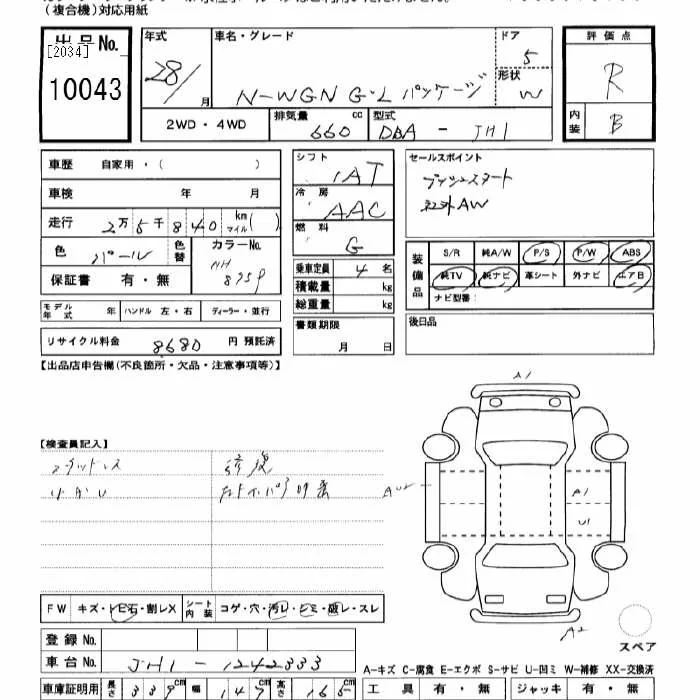 (複合機)対応用紙
出品No.
[2034]
10043
年式
28/
月
車名・グレード
N-WGN G・L パッケージ
ドア
5
形状
W
評価点
R
内装
B
2WD・4WD
排気量
660
cc
型式
DBA - JH1
車歴 自家用・( )
車検 年 月
走行 2万5千840 km マイル( )
色 パール
色替
カラーNo.
NH
875P
保証書 有・無
モデル年式 年
ハンドル 左・右
ディーラー・並行
リサイクル料金 8680 円 預託済
シフト
IAT
冷房
AAC
燃料
G
乗車定員 4 名
積載量 kg
総重量 kg
書類期限
月 日
セールスポイント
プッシュスタート
社外AW
装備品
S/R 純A/W P/S P/W ABS
純TV 純ナビ 革シート 外ナビ エアB
ナビ型番:
後日品
【出品店申告欄(不良箇所・欠品・注意事項等)】
【検査員記入】
スタッドレス
修復
A1
A1
U1
A2
FW キズ・トビ石・割レX
シート内装 コゲ・穴・汚レ・シミ・破レ・スレ
登録No.
車台No. JH1-1242333
スペア
A-キズ C-腐食 E-エクボ S-サビ U-凹ミ W-補修 XX-交換済
車庫証明用 長さ 339 cm 幅 147 cm 高さ 165 cm
工具 有・無 ジャッキ 有・無